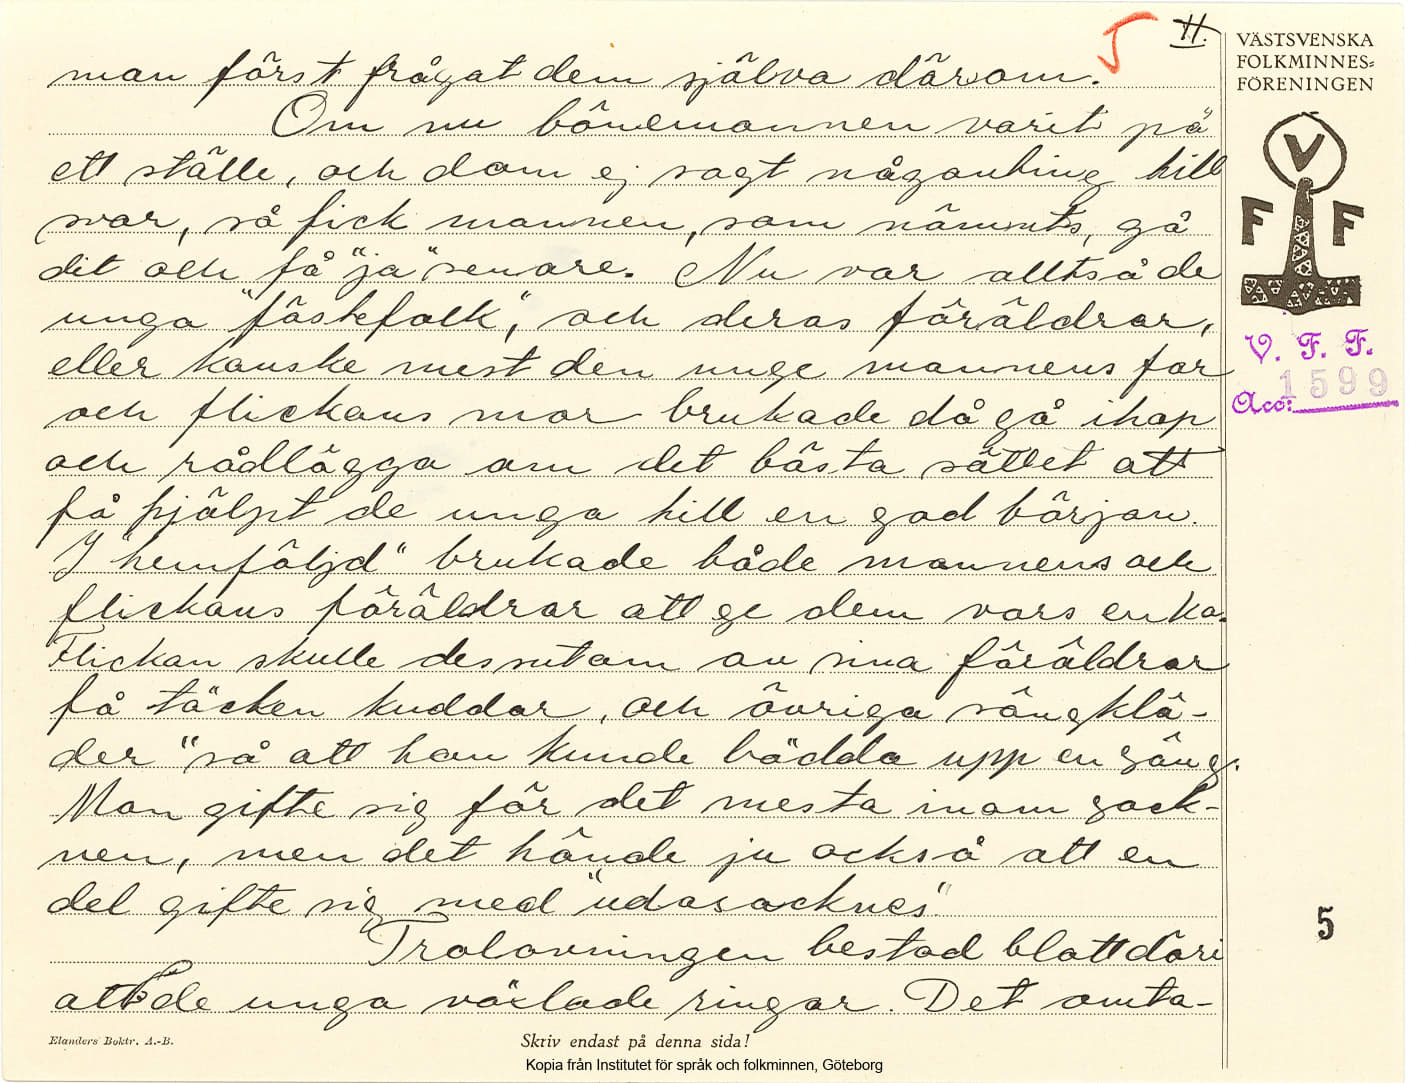 5 H.
man först frågat dem själva därom.
Om nu bönemannen varit på
ett ställe, och dom ej sagt någonting till
svar, så fick mannen, som nämnts, gå
dit och få "ja" senare. Nu var alltså de
unga "fästefolk", och deras föräldrar,
eller kanske mest den unge mannens far
och flickans mor brukade då gå ihop
och rådlägga om det bästa sättet att
få hjälpt de unga till en god början.
I "hemföljd" brukade både mannens och
flickans föräldrar att ge dem vars en ko.
Flickan skulle dessutom av sina föräldrar
få täcken kuddar, och övriga sängklä-
der "så att hon kunde bädda upp en säng.
Man gifte sig för det mesta inom sock-
nen, men det hände ju också att en
del gifte sig med "udasocknes"
"Trolovningen bestod blott däri
att de unga växlade ringar. Det omta-
VÄSTSVENSKA
FOLKMINNES=
FÖRENINGEN
V
F F
V. F. F.
Acc: 1599
5
Elanders Boktr. A.-B.
Skriv endast på denna sida!
Kopia från Institutet för språk och folkminnen, Göteborg